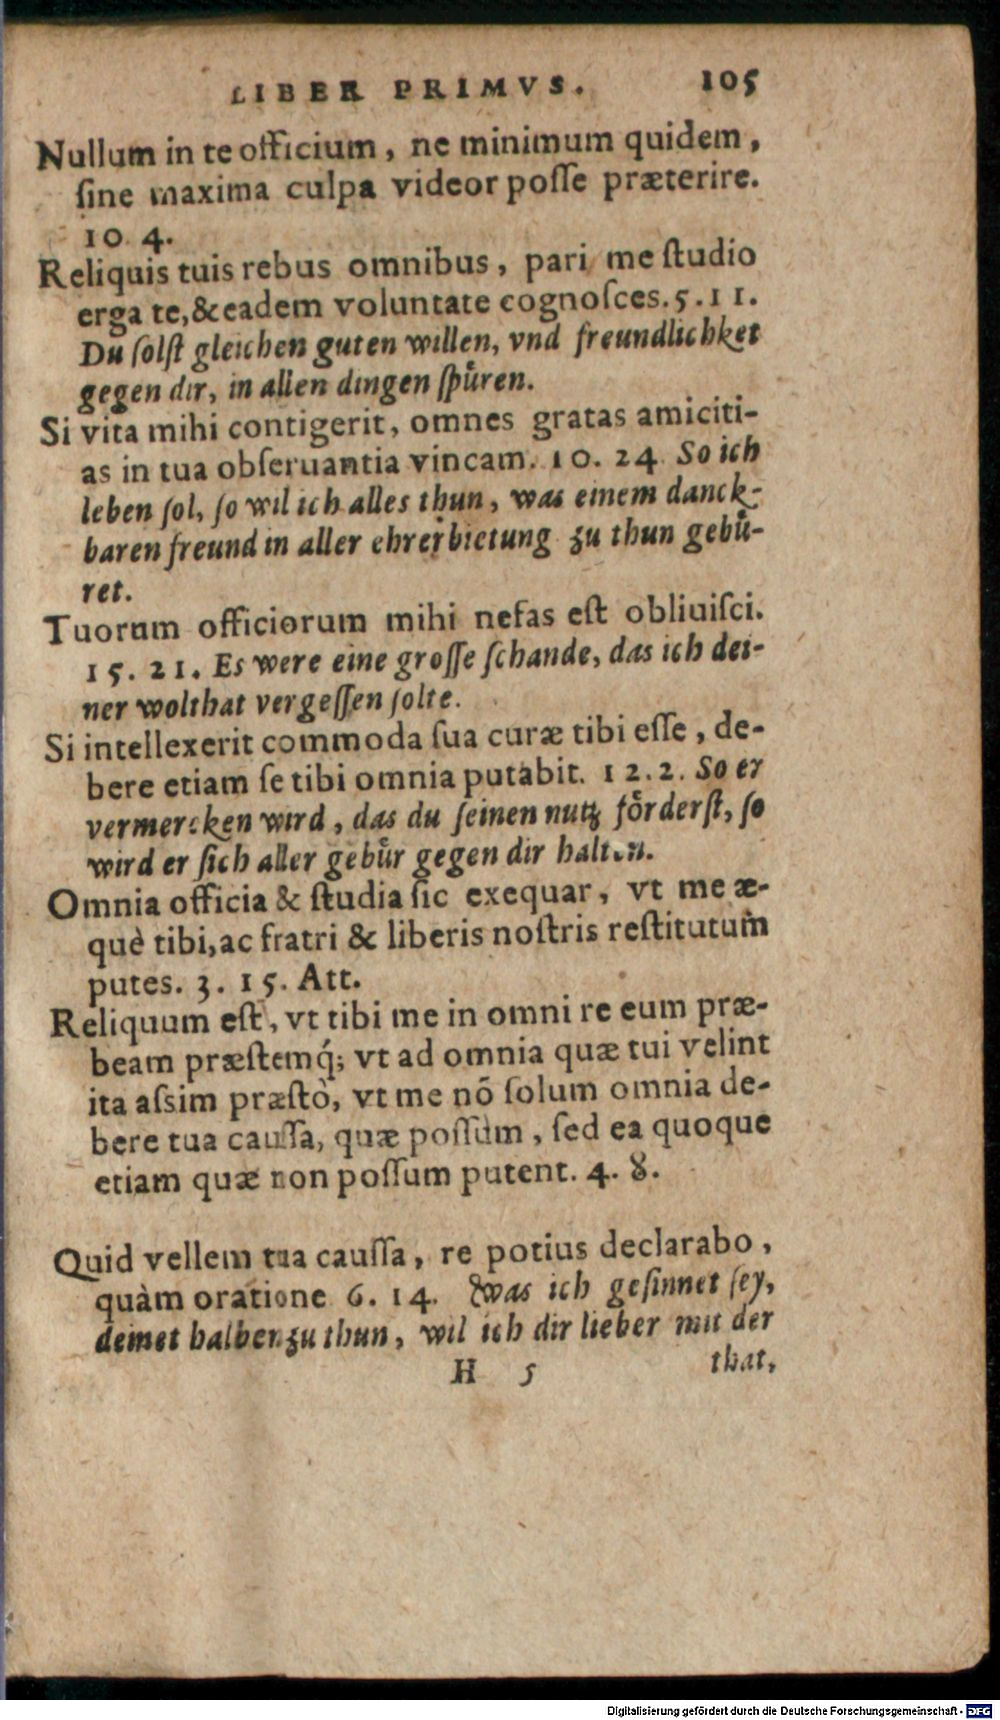 LIBER PRIMVS. 105
Nullum in te officium, ne minimum quidem,
ſine maxima culpa videor poſſe præterire.
10 4.
Reliquis tuis rebus omnibus, pari me ſtudio
erga te,&eadem voluntate cognoſces. 5. 11.
Du ſolſt gleichen guten willen, vnd freundlichket
gegen dir, in allen dingen ſpuͤren.
Si vita mihi contigerit, omnes gratas amiciti-
as in tua obſeruantia vincam. 10. 24. So ich
leben ſol, ſo wil ich alles thun, was einem danck-
baren freund in aller ehrerbietung zu thun gebuͤ-
ret.
Tuorum officiorum mihi nefas eſt obliuiſci.
15. 21. Es were eine groſſe ſchande, das ich dei-
ner wolthat vergeſſen ſolte.
Si intellexerit commoda ſua curæ tibi eſſe, de-
bere etiam ſe tibi omnia putabit. 12. 2. So er
vermercken wird, das du ſeinen nutz foͤrderſt, ſo
wird er ſich aller gebuͤr gegen dir halten.
Omnia officia & ſtudia ſic exequar, vt me æ-
què tibi, ac fratri & liberis noſtris reſtitutum
putes. 3. 15. Att.
Reliquum eſt, vt tibi me in omni re eum præ-
beam præſtemq́; vt ad omnia quæ tui velint
ita aſsim præſtò, vt me nõ ſolum omnia de-
bere tua cauſſa, quæ poſſum, ſed ea quoque
etiam quæ non poſſum putent. 4. 8.
Quid vellem tua cauſſa, re potius declarabo,
quàm oratione 6. 14. Was ich geſinnet ſey,
deinet halben zu thun, wil ich dir lieber mit der
H 5 that,
Digitalisierung gefördert durch die Deutsche Forschungsgemeinschaft - DFG